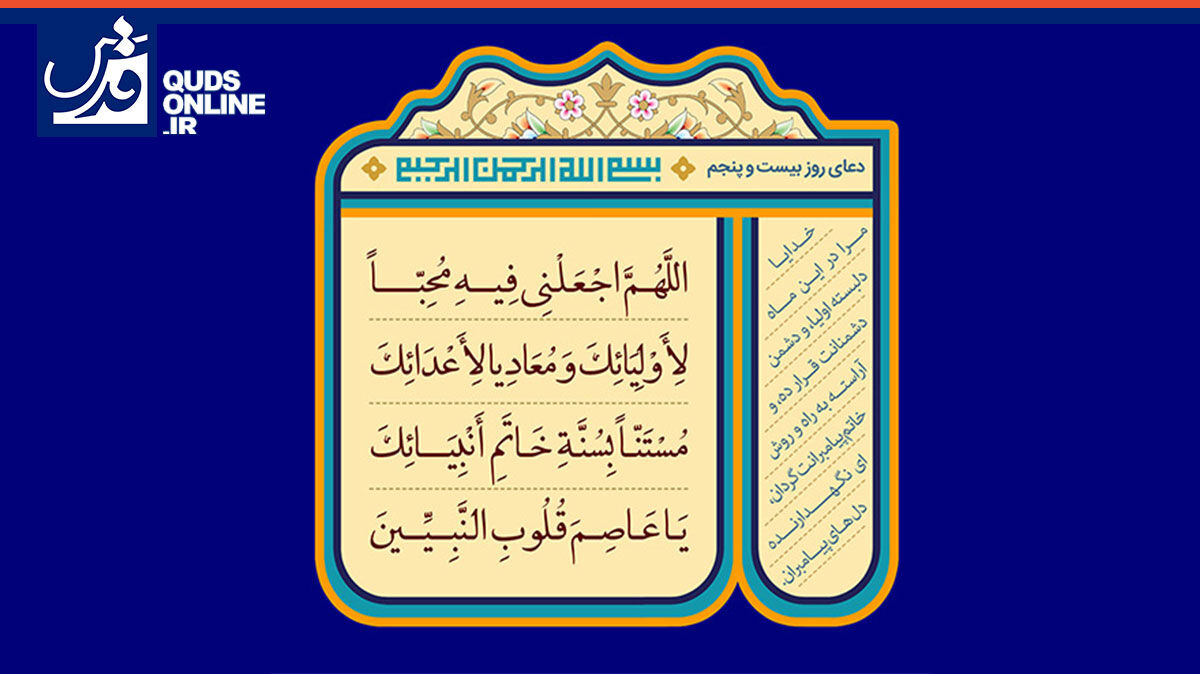 قدس
QUDS
ONLINE
.IR
دعای روز بیست و پنجم
بسم الله الرحمن الرحیم
اللَّهُمَّ اجْعَلْنِی فِیهِ مُحِبّاً
لِأَوْلِیَائِكَ وَ مُعَادِیا لِأَعْدَائِكَ
مُسْتَنّاً بِسُنَّةِ خَاتَمِ أَنْبِیَائِكَ
یَا عَاصِمَ قُلُوبِ النَّبِیِّینَ
خدایا
مرا در این ماه
دلبسته اولیاء و دشمن
دشمنانت قرار ده، و
آراسته به راه و روش
خاتم پیامبرانت گردان،
ای نگهدارنده
دل‌های پیامبران.